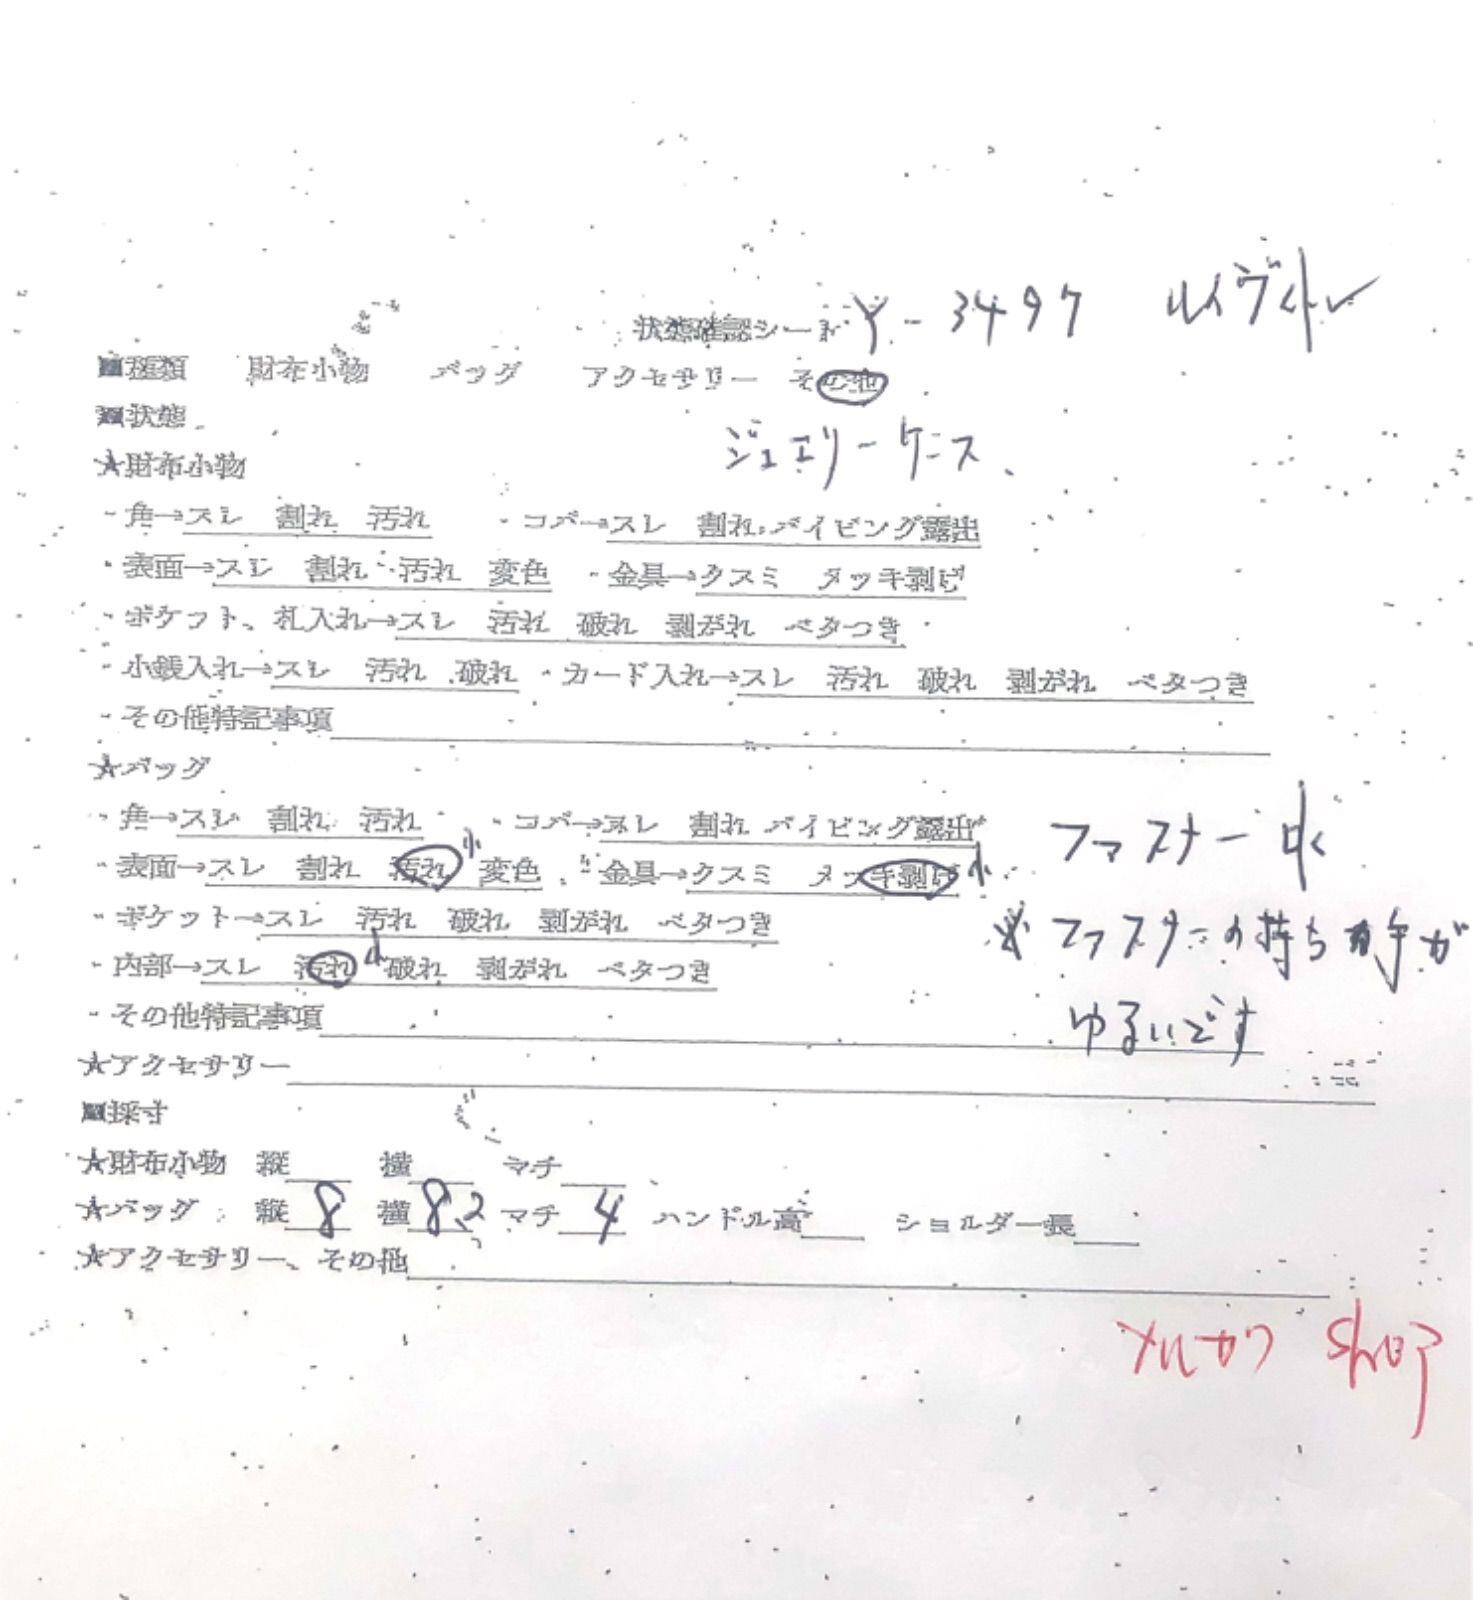 状態確認シート Y-3497 ルイヴィトン
■種類 財布小物 バッグ アクセサリー その他
■状態
ジュエリーケース
★財布小物
・角→スレ 割れ 汚れ ・コバ→スレ 割れ パイピング露出
・表面→スレ 割れ 汚れ 変色 ・金具→クスミ メッキ剥げ
・ポケット、札入れ→スレ 汚れ 破れ 剥がれ ベタつき
・小銭入れ→スレ 汚れ 破れ ・カード入れ→スレ 汚れ 破れ 剥がれ ベタつき
・その他特記事項
★バッグ
・角→スレ 割れ 汚れ ・コバ→スレ 割れ パイピング露出
ファスナー 小
・表面→スレ 割れ 汚れ 小 変色 ・金具→クスミ メッキ剥げ 小
・ポケット→スレ 汚れ 破れ 剥がれ ベタつき
※ファスナーの持ち手が
・内部→スレ 汚れ 小 破れ 剥がれ ベタつき
・その他特記事項 ゆるいです
★アクセサリー
■採寸
★財布小物 縦 横 マチ
★バッグ 縦 8 横 8.2 マチ 4 ハンドル高 ショルダー長
★アクセサリー、その他
メルカリ shop